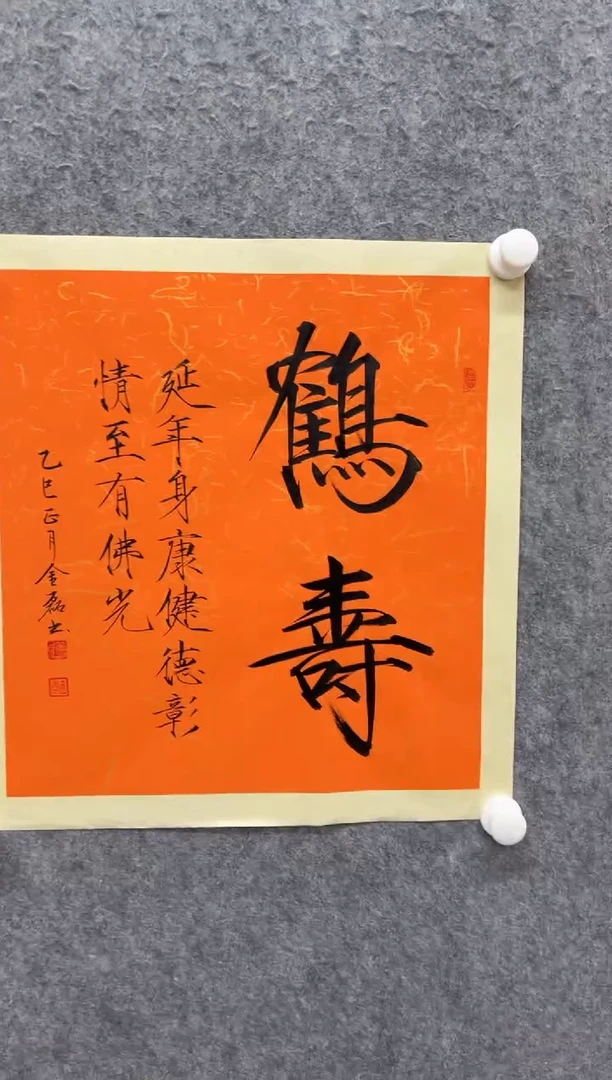 鶴壽
延年身康健德彰
情至有佛光
乙巳正月金磊书